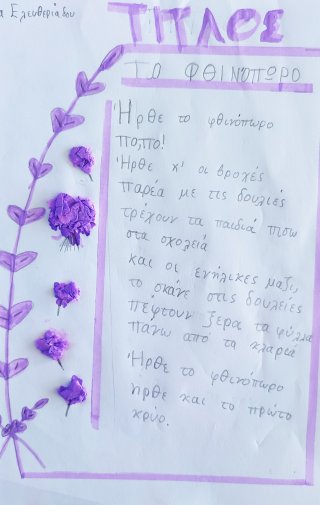 α Ελευθεριάδου
ΤΙΤΛΟΣ
ΤΟ ΦΘΙΝΟΠΩΡΟ
Ήρθε το φθινόπωρο
ποπο!
Ήρθε κ' οι βροχές
παρέα με τις δουλιές
τρέχουν τα παιδιά πισω
στα σχολειά
και οι ενήλικες μαζι
το σκάνε στις δουλειές
πέφτουν ξερα τα φύλλα
πάνω από τα κλαριά
Ήρθε το φθινόπωρο
ηρθε και το πρώτο
κρύο.